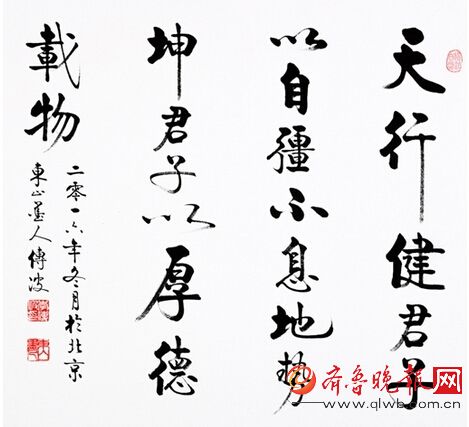 天行健君子
以自彊不息地勢
坤君子以厚德
載物
二零一六年冬月於北京
東山墨人傳波
齐鲁晚报网
www.qlwb.com.cn